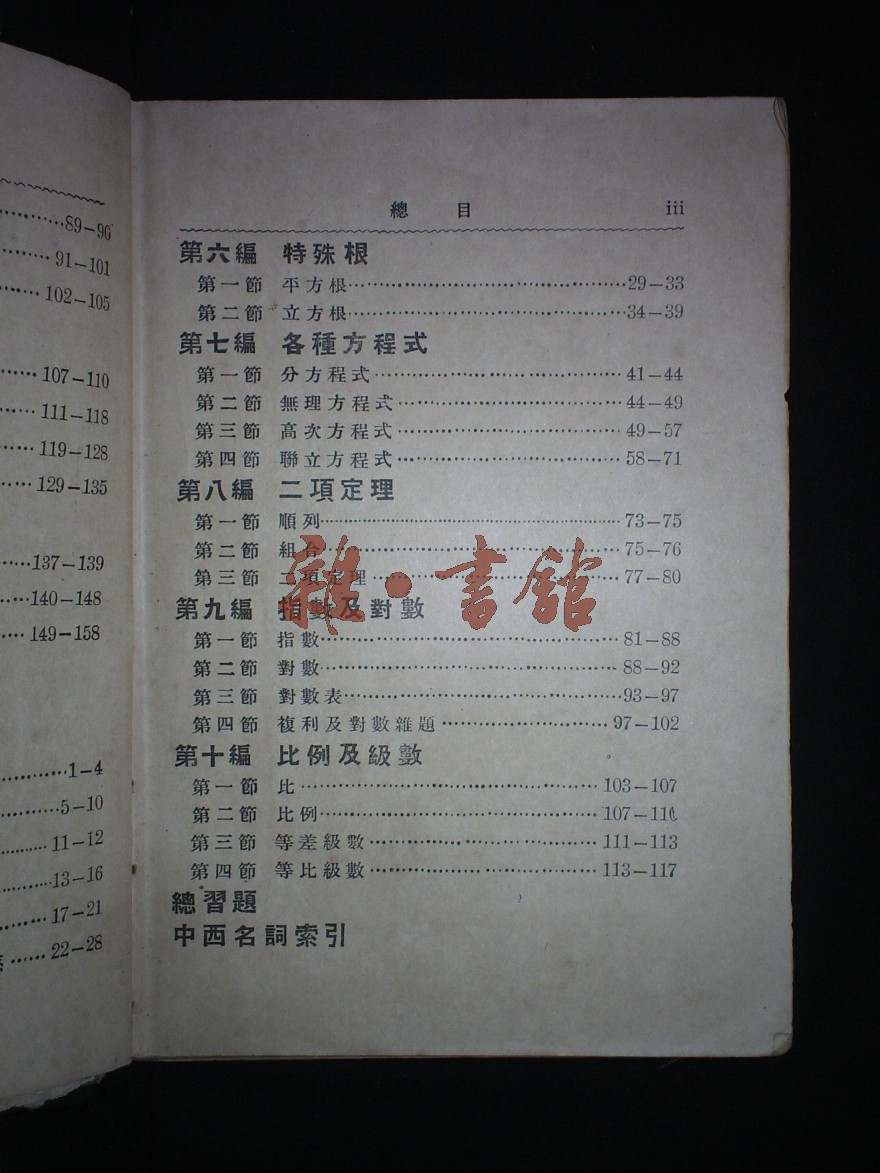 89–90
91–101
102–105
107–110
111–118
119–128
129–135
137–139
140–148
149–158
1–4
5–10
11–12
13–16
17–21
22–28
總 目 iii
第六編 特殊根
第一節 平方根 29–33
第二節 立方根 34–39
第七編 各種方程式
第一節 分方程式 41–44
第二節 無理方程式 44–49
第三節 高次方程式 49–57
第四節 聯立方程式 58–71
第八編 二項定理
第一節 順列 73–75
第二節 組合 75–76
第三節 二項定理 77–80
第九編 指數及對數
第一節 指數 81–88
第二節 對數 88–92
第三節 對數表 93–97
第四節 複利及對數雜題 97–102
第十編 比例及級數
第一節 比 103–107
第二節 比例 107–110
第三節 等差級數 111–113
第四節 等比級數 113–117
總習題
中西名詞索引
雜·書館